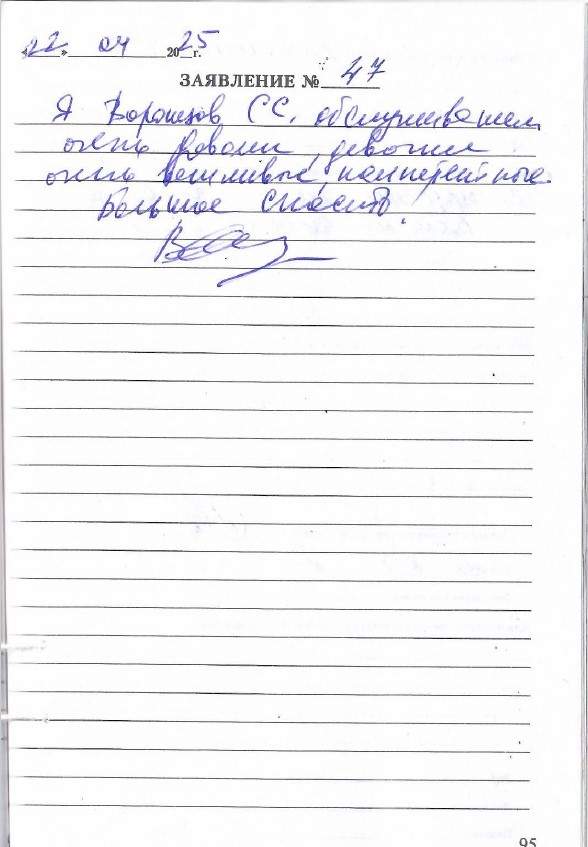 «22» 04 2025 г.
ЗАЯВЛЕНИЕ № 47
Я Воронцов С С. обслуживанием
очень доволен, девочки
очень вежливые, компетентные.
Большое спасибо.
95